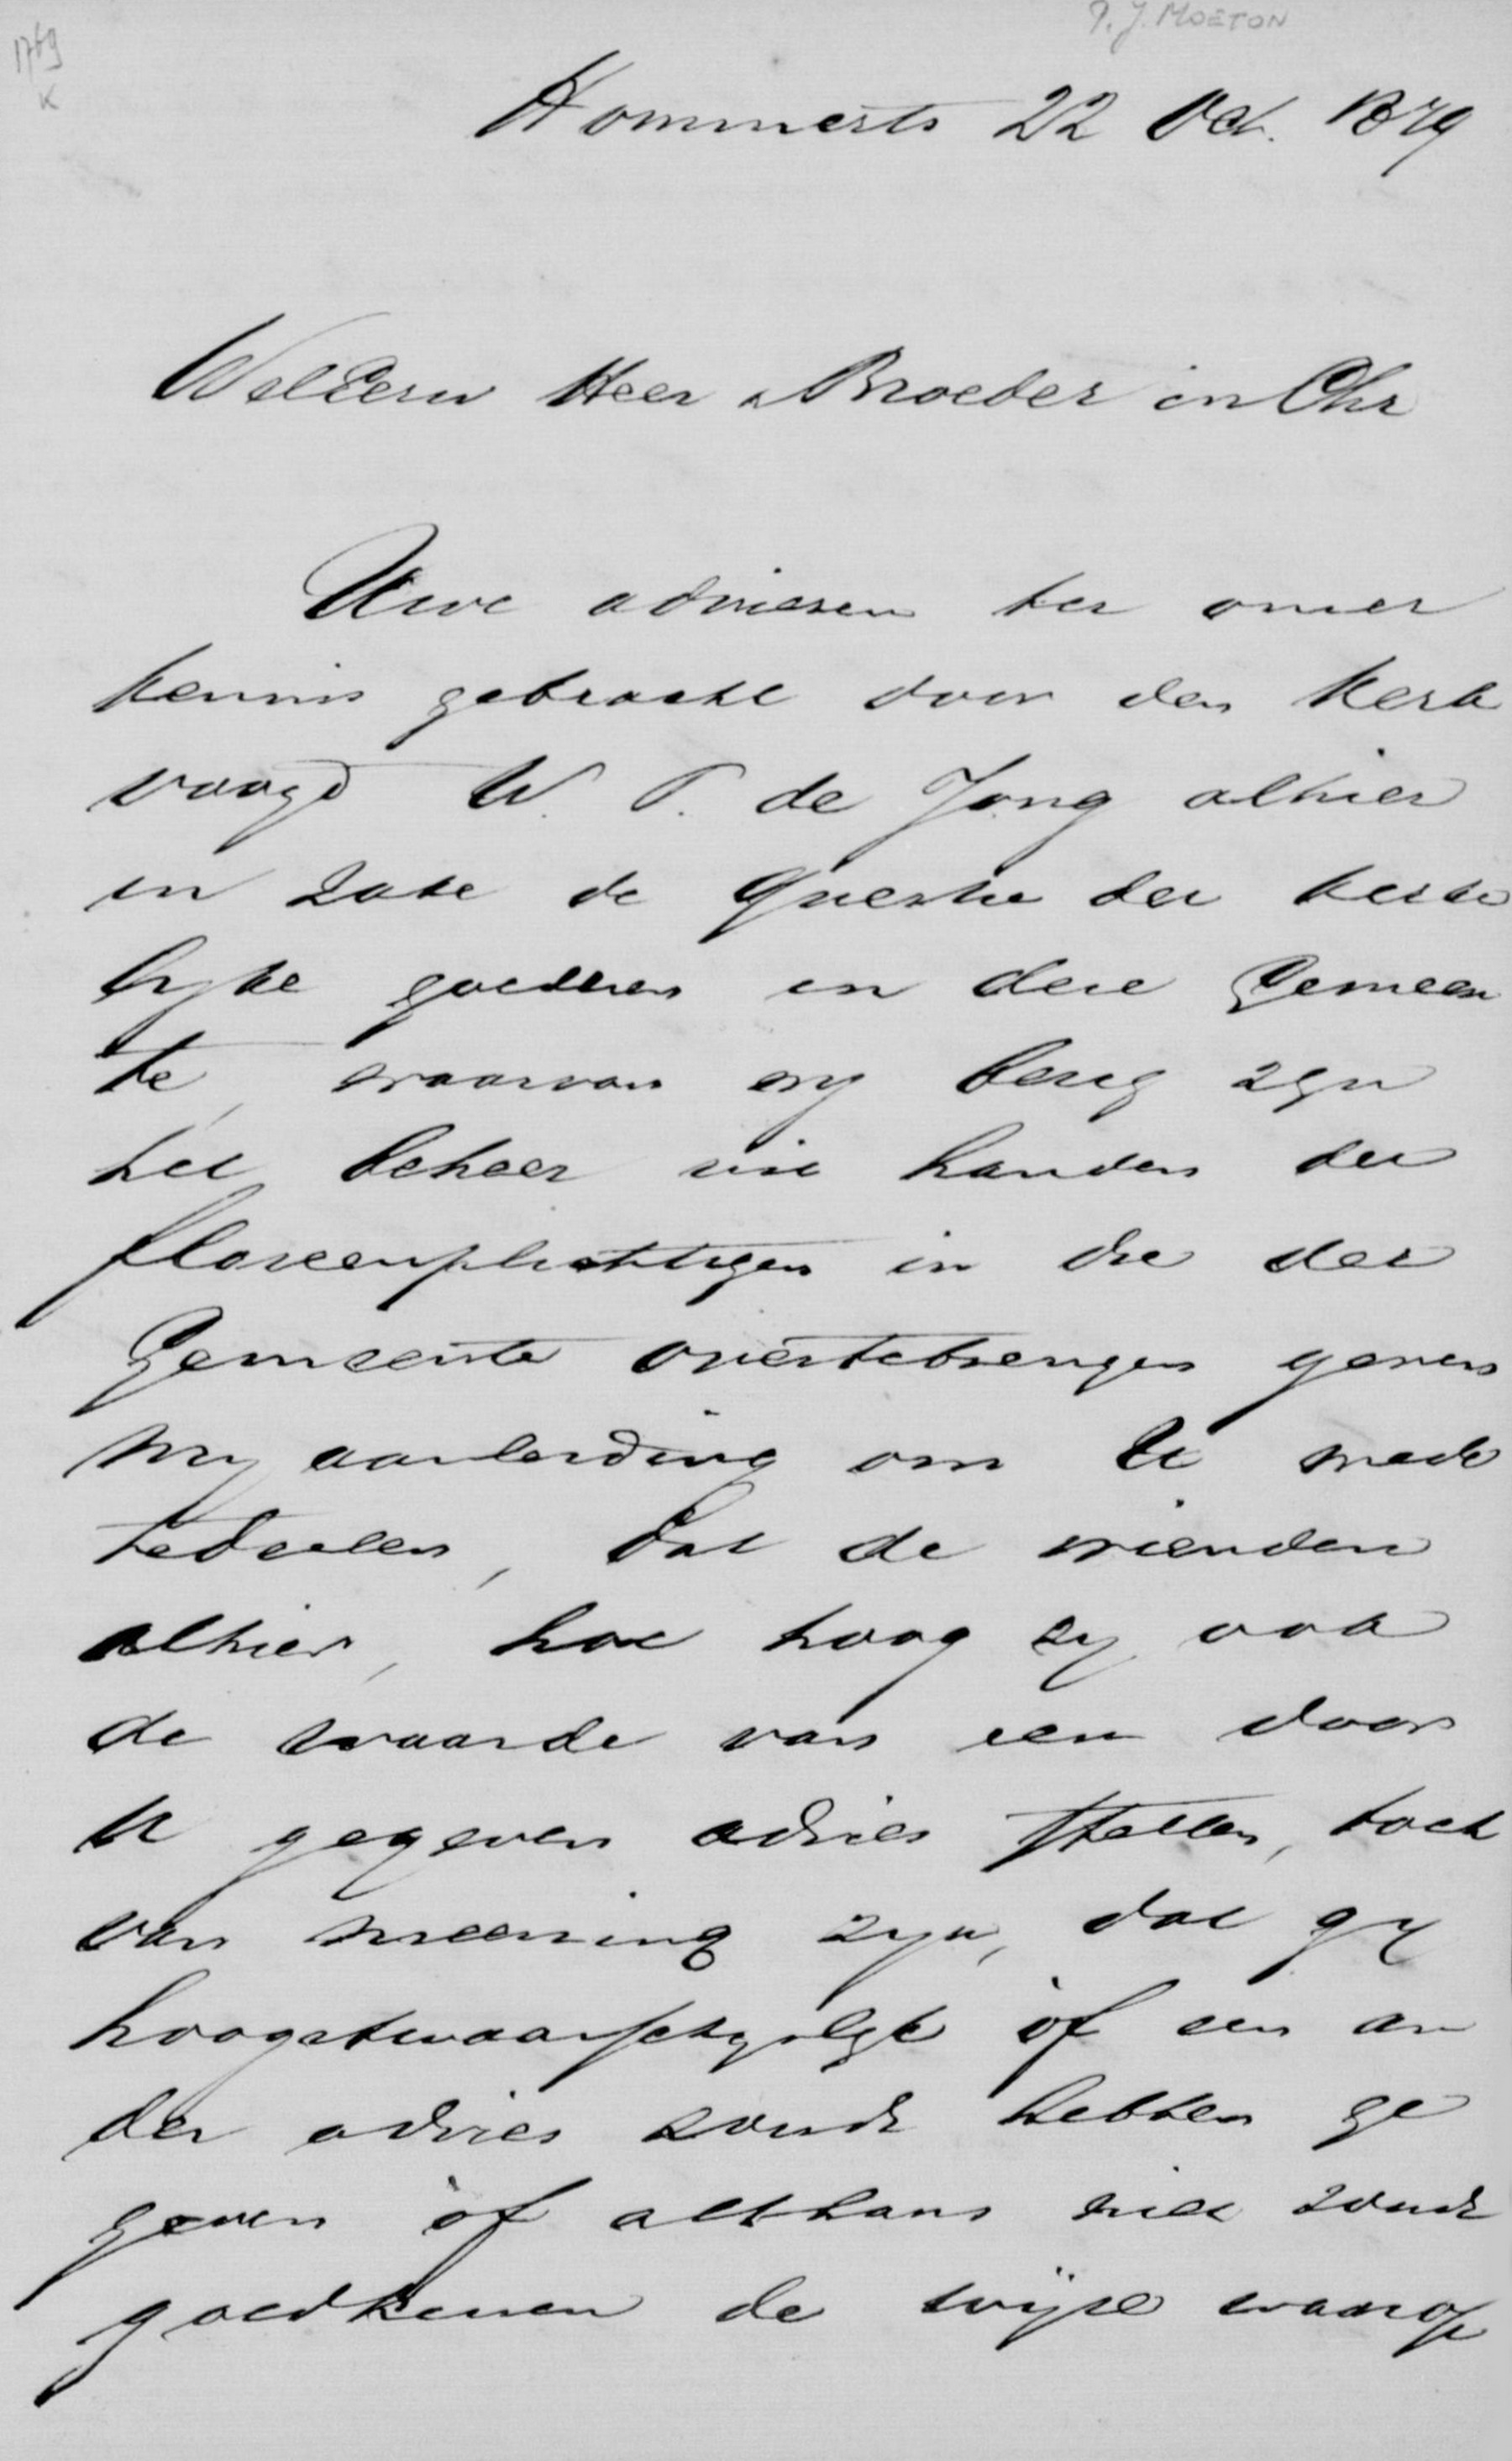 P. J. MOETON
1769
K
Hommerts 22 Oct. 1879
WelEerw Heer & Broeder in Chr
Uwe adviesen ter onzer
kennis gebracht door den Kerk
voogd W. P. de Jong alhier
in zake de Questie der kerke
lyke goederen in deze Gemeen
te, waarvan wy bezig zyn
het beheer uit handen der
floreenplichtigen in die der
Gemeente overtebrengen geven
my aanleiding om U mede
tedeelen, dat de vrienden
alhier, hoe hoog zy ook
de waarde van een door
U gegeven advies stellen, toch
van meening zyn, dat gy
hoogstwaarschynlyk òf een an
der advies zoudt hebben ge
geven òf althans niet zoudt
goedkeuren de wijze waarop